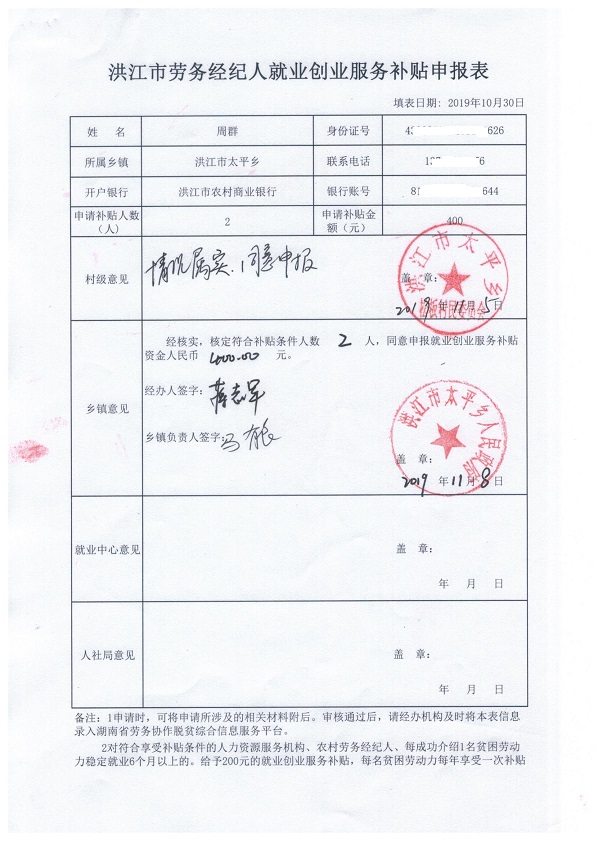 洪江市劳务经纪人就业创业服务补贴申报表
填表日期: 2019年10月30日
姓 名 周群 身份证号 43 626
所属乡镇 洪江市太平乡 联系电话 6
开户银行 洪江市农村商业银行 银行账号 81 644
申请补贴人数（人） 2 申请补贴金额（元） 400
村级意见
情况属实.同意申报
盖 章:
洪江市太平乡
村民委员会
2019年11月5日
乡镇意见
经核实，核定符合补贴条件人数 2 人，同意申报就业创业服务补贴
资金人民币 400.00 元。
经办人签字:
乡镇负责人签字:
洪江市太平乡人民政府
盖 章:
2019年11月8日
就业中心意见
盖 章:
年 月 日
人社局意见
盖 章:
年 月 日
备注: 1申请时，可将申请所涉及的相关材料附后。审核通过后，请经办机构及时将本表信息
录入湖南省劳务协作脱贫综合信息服务平台。
2对符合享受补贴条件的人力资源服务机构、农村劳务经纪人、每成功介绍1名贫困劳动
力稳定就业6个月以上的。给予200元的就业创业服务补贴，每名贫困劳动力每年享受一次补贴